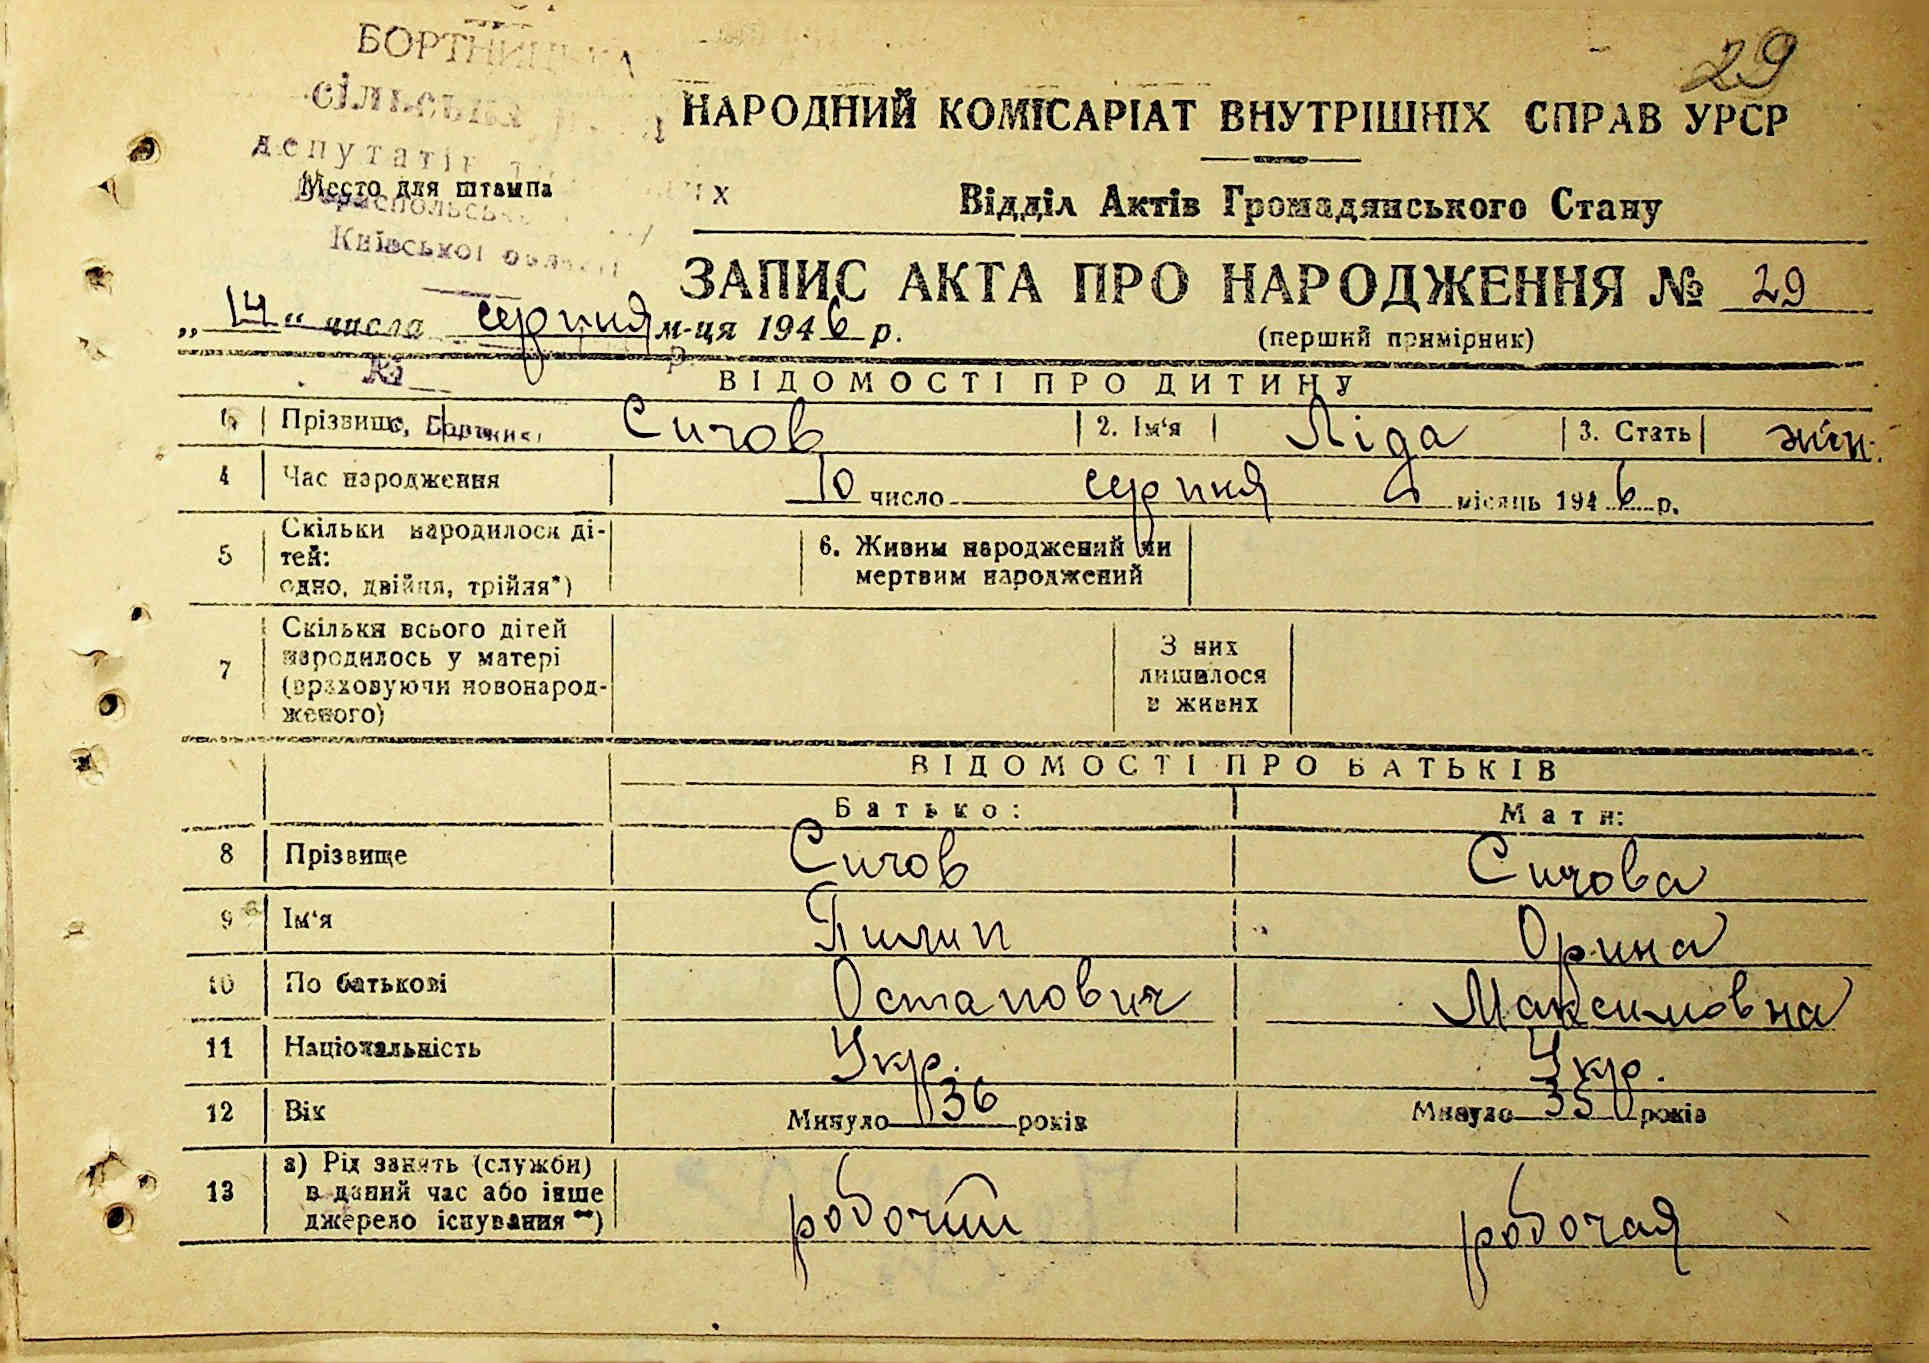 29
сільська
депутатів
Київської
НАРОДНИЙ КОМІСАРІАТ ВНУТРІШНІХ СПРАВ УРСР
Место для штампа
Відділ Актів Громадянського Стану
ЗАПИС АКТА ПРО НАРОДЖЕННЯ № 29
„14" числа серпня м-ця 1946 р.
(перший примірник)
№
ВІДОМОСТІ ПРО ДИТИНУ
1. Прізвище Сичов 2. Ім'я Ліда 3. Стать жін.
4 Час народження 10 число серпня місяць 1946 р.
5 Скільки народилося ді-
тей:
одно, двійня, трійня*)
6. Живим народжений чи
мертвим народжений
7 Скільки всього дітей
народилось у матері
(враховуючи новонарод-
женого)
З них
лишилося
в живих
ВІДОМОСТІ ПРО БАТЬКІВ
Батько: Мати:
8 Прізвище Сичов Сичова
9 Ім'я Пилип Орина
10 По батькові Остапович Максимовна
11 Національність Укр. Укр.
12 Вік Минуло 36 років Минуло 35 років
13 а) Рід занять (служби)
в даний час або інше
джерело існування **)
робочий робочая